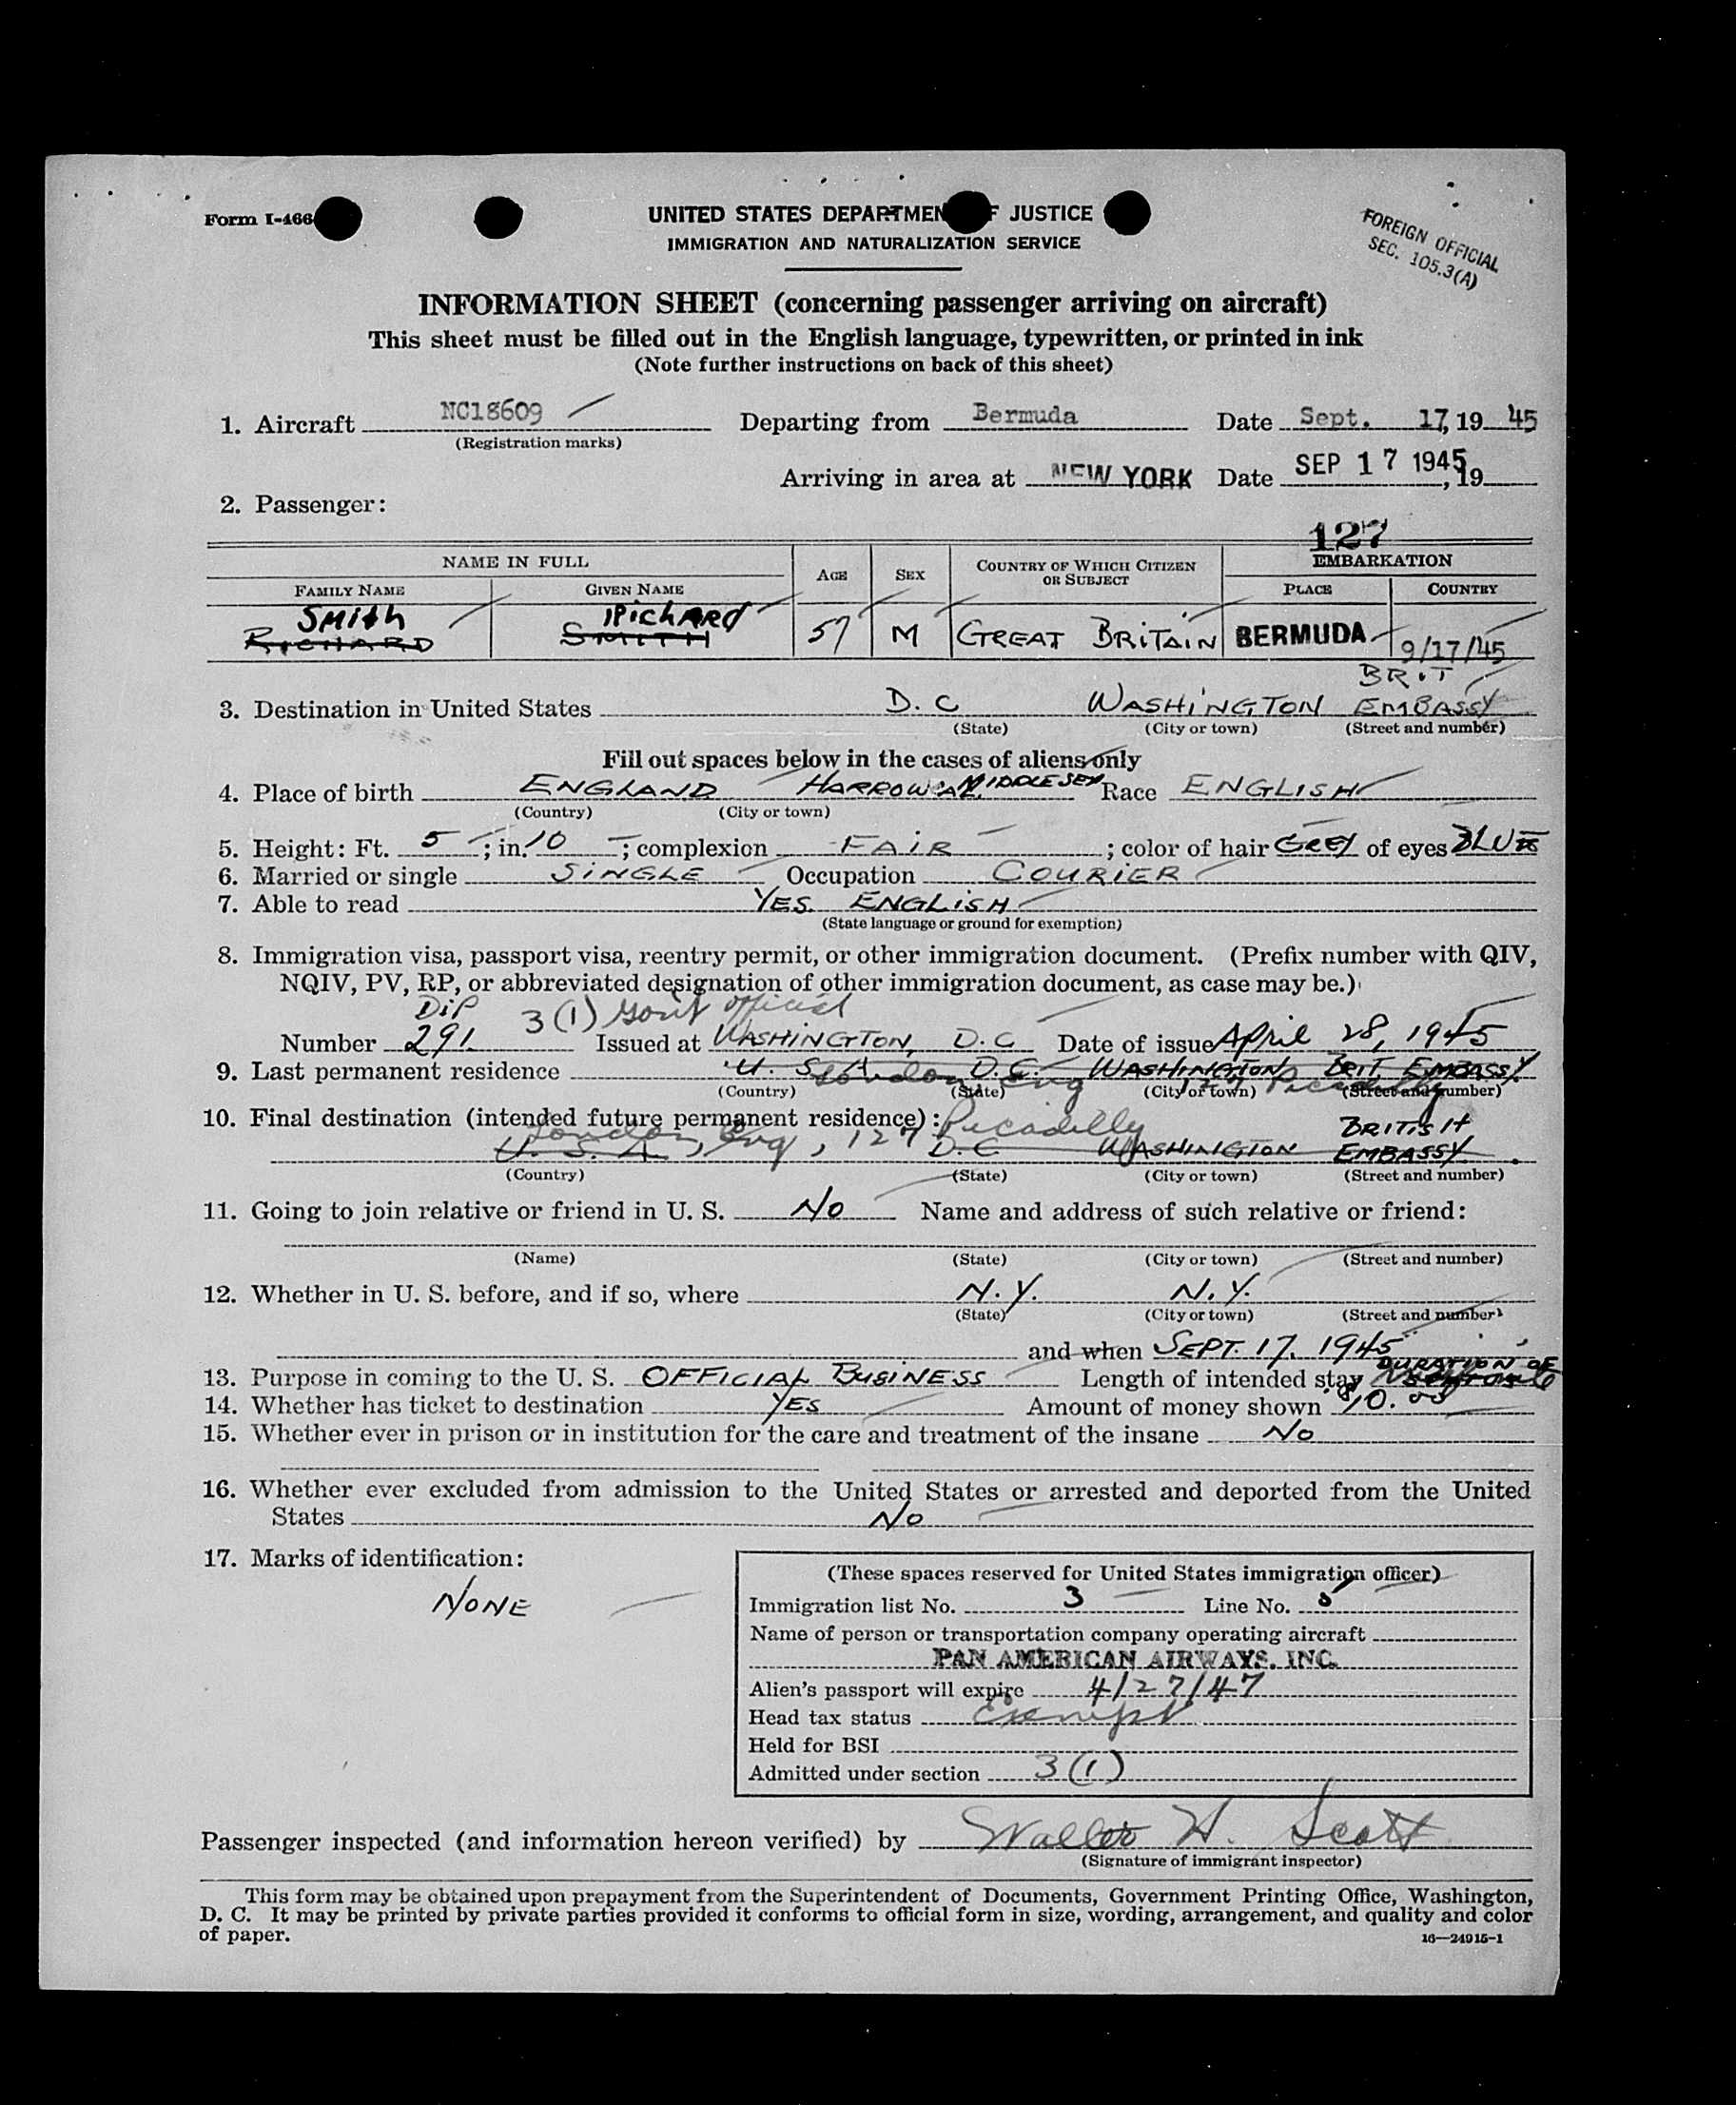 Form I-466
UNITED STATES DEPARTMEN F JUSTICE
IMMIGRATION AND NATURALIZATION SERVICE
FOREIGN OFFICIAL
SEC. 105.3(A)
INFORMATION SHEET (concerning passenger arriving on aircraft)
This sheet must be filled out in the English language, typewritten, or printed in ink
(Note further instructions on back of this sheet)
1. Aircraft NC18609 Departing from Bermuda Date Sept. 17, 19 45
(Registration marks)
Arriving in area at NEW YORK Date SEP 17 1945, 19
2. Passenger:
127
NAME IN FULL AGE SEX COUNTRY OF WHICH CITIZEN OR SUBJECT EMBARKATION
FAMILY NAME GIVEN NAME PLACE COUNTRY
SMith RichARd
RICHARD SMITH 57 M GREAT BRITAIN BERMUDA 9/17/45
BRIT
3. Destination in United States D.C WASHINGTON EMBASSY
(State) (City or town) (Street and number)
Fill out spaces below in the cases of aliens only
4. Place of birth ENGLAND HARROW MIDDLESEX Race ENGLISH
(Country) (City or town)
5. Height: Ft. 5; in. 10; complexion FAIR; color of hair GREY of eyes BLUE
6. Married or single SINGLE Occupation COURIER
7. Able to read YES. ENGLISH
(State language or ground for exemption)
8. Immigration visa, passport visa, reentry permit, or other immigration document. (Prefix number with QIV,
NQIV, PV, RP, or abbreviated designation of other immigration document, as case may be.)
DiP 3(1) Gov't official
Number 291. Issued at WASHINGTON, D.C Date of issue April 28, 1945
9. Last permanent residence U.S.A D.C. WASHINGTON BRIT. EMBASSY.
London, Eng 127 Picadilly
(Country) (State) (City or town) (Street and number)
10. Final destination (intended future permanent residence): BRITISH
London, Eng, 127 Picadilly
U.S.A D.C WASHINGTON EMBASSY.
(Country) (State) (City or town) (Street and number)
11. Going to join relative or friend in U. S. No Name and address of such relative or friend:
(Name) (State) (City or town) (Street and number)
12. Whether in U. S. before, and if so, where N.Y. N.Y.
(State) (City or town) (Street and number)
and when SEPT. 17. 1945
DURATION OF
13. Purpose in coming to the U. S. OFFICIAL BUSINESS Length of intended stay
14. Whether has ticket to destination YES Amount of money shown $10.00
15. Whether ever in prison or in institution for the care and treatment of the insane No
16. Whether ever excluded from admission to the United States or arrested and deported from the United
States No
17. Marks of identification:
NONE
(These spaces reserved for United States immigration officer)
Immigration list No. 3 Line No.
Name of person or transportation company operating aircraft
PAN AMERICAN AIRWAYS, INC.
Alien's passport will expire 4/27/47
Head tax status Exempt
Held for BSI
Admitted under section 3(1)
Passenger inspected (and information hereon verified) by Walter H. Scott
(Signature of immigrant inspector)
This form may be obtained upon prepayment from the Superintendent of Documents, Government Printing Office, Washington,
D. C. It may be printed by private parties provided it conforms to official form in size, wording, arrangement, and quality and color
of paper.
16—24915-1